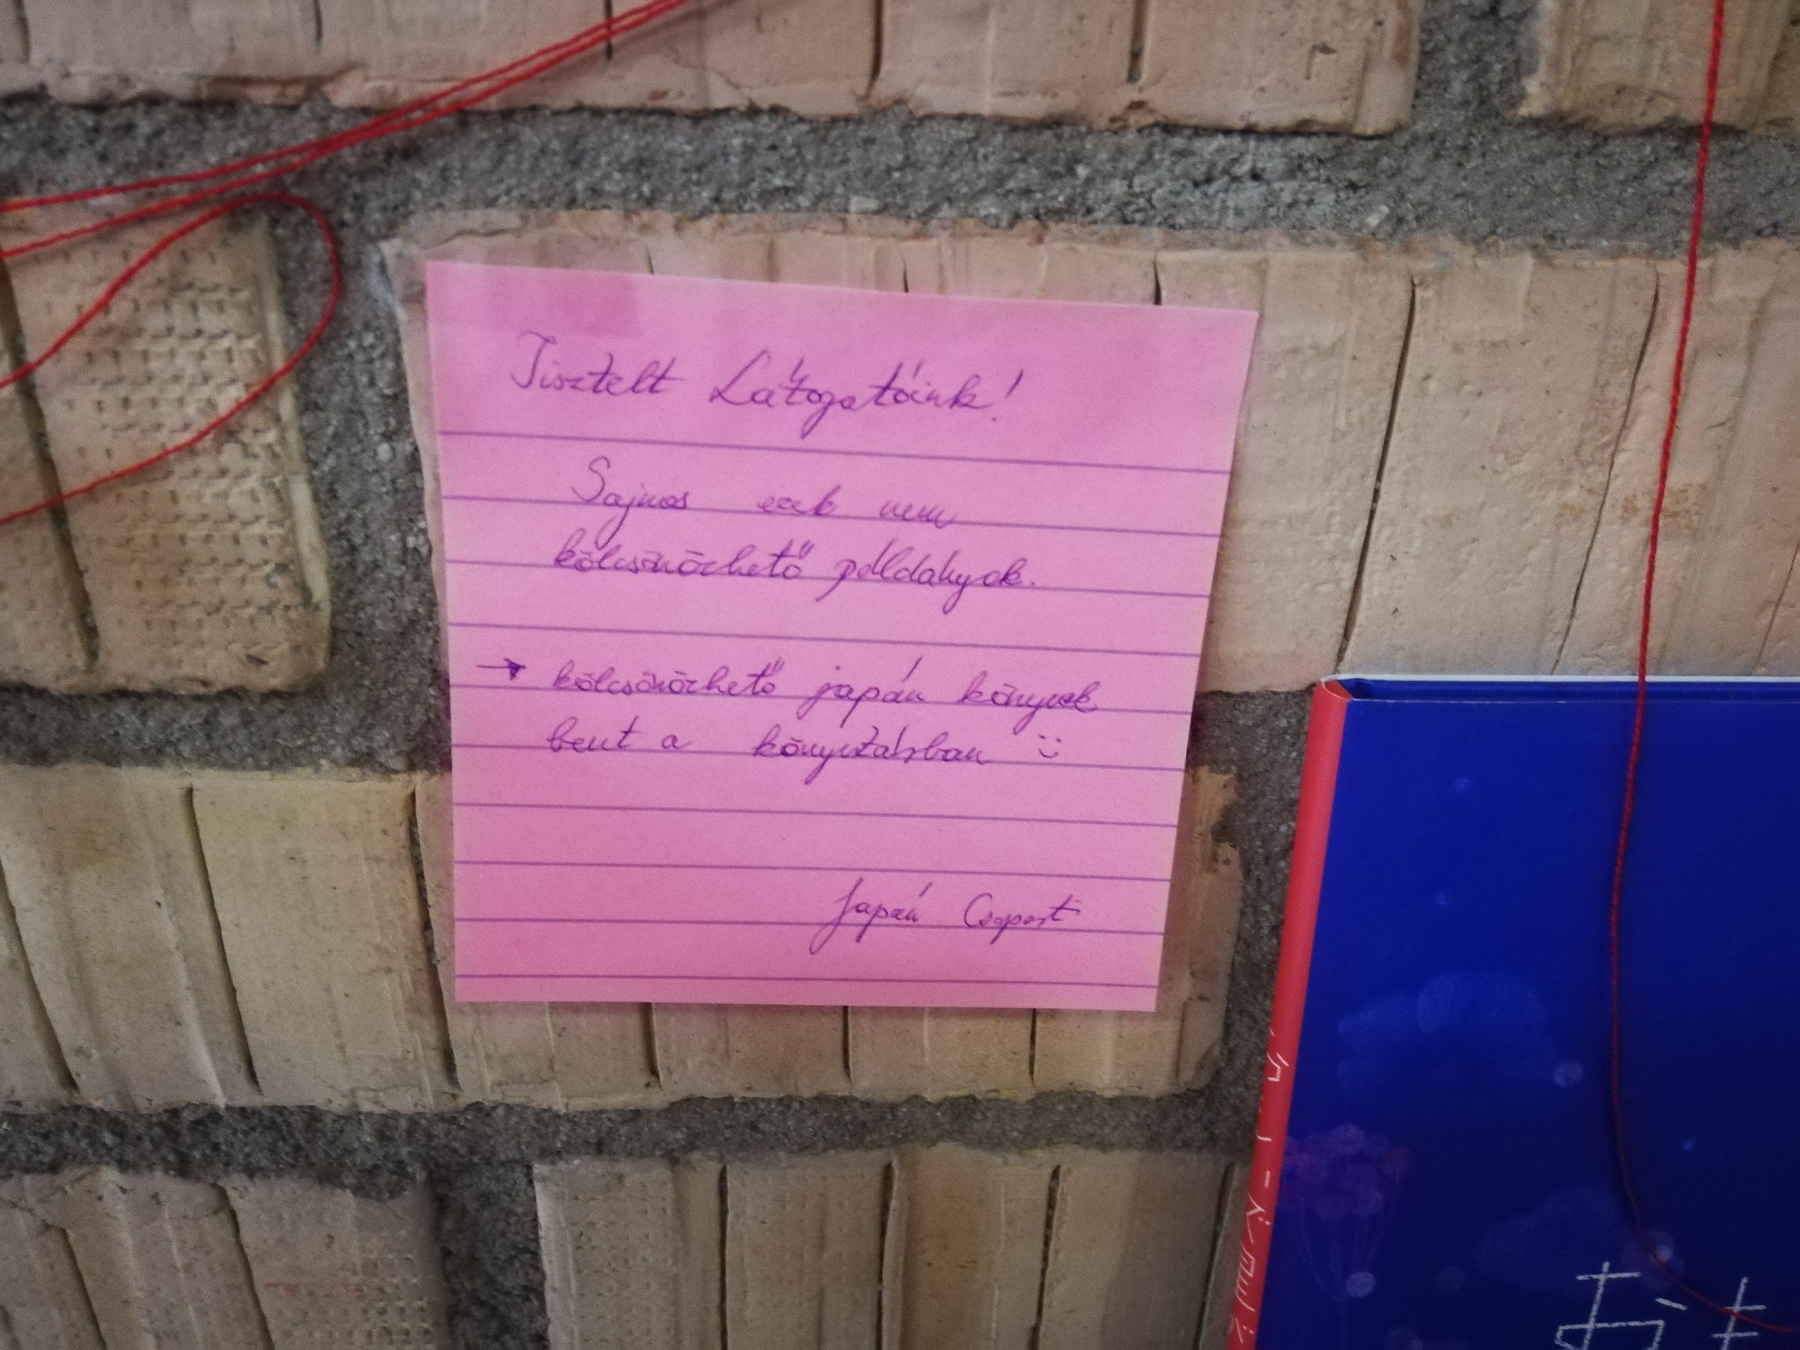 Tisztelt Látogatóink!
Sajnos ezek nem
kölcsönözhető példányok.
→ kölcsönözhető japán könyvek
bent a könyvtárban :)
Japán Csoport
おも